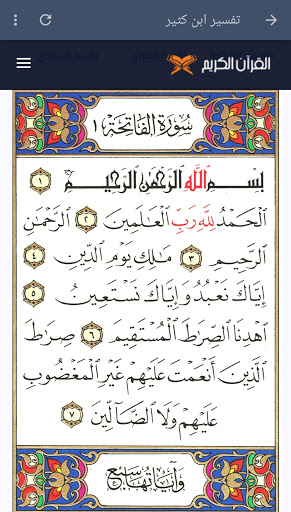 تفسير ابن كثير
القرآن الكريم
سُورَةُ الفَاتِحَةِ ١
بِسْمِ اللَّهِ الرَّحْمَٰنِ الرَّحِيمِ ١
الْحَمْدُ لِلَّهِ رَبِّ الْعَالَمِينَ ٢ الرَّحْمَٰنِ
الرَّحِيمِ ٣ مَالِكِ يَوْمِ الدِّينِ ٤
إِيَّاكَ نَعْبُدُ وَإِيَّاكَ نَسْتَعِينُ ٥
اهْدِنَا الصِّرَاطَ الْمُسْتَقِيمَ ٦ صِرَاطَ
الَّذِينَ أَنْعَمْتَ عَلَيْهِمْ غَيْرِ الْمَغْضُوبِ
عَلَيْهِمْ وَلَا الضَّالِّينَ ٧
وَآيَاتُهَا سَبْع